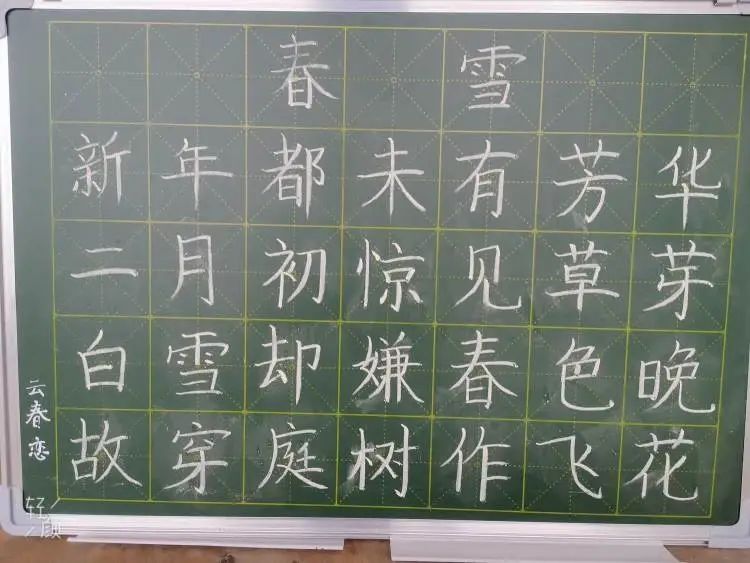 春雪
新年都未有芳华
二月初惊见草芽
白雪却嫌春色晚
故穿庭树作飞花
云春恋
轻颜